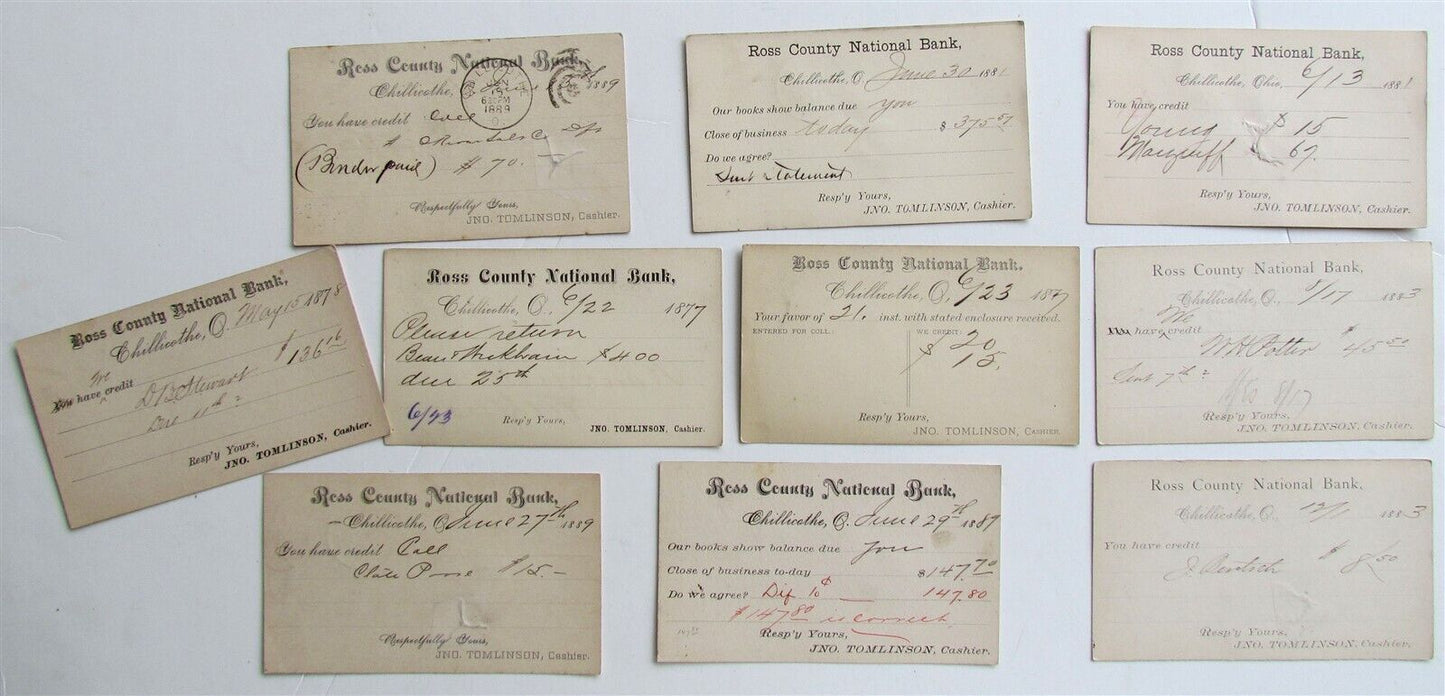 Ross County National Bank,
Chillicothe, 1889
You have credit Coll
(Bender paid) $70.
Respectfully Yours,
JNO. TOMLINSON, Cashier.
6 PM
1889
O.
Ross County National Bank,
Chillicothe, O. June 30 1881
Our books show balance due you
Close of business today $375.07
Do we agree?
Sent statement
Resp'y Yours,
JNO. TOMLINSON, Cashier.
Ross County National Bank,
Chillicothe, Ohio, 6/13 1881
You have credit
Young $15
67.
Resp'y Yours,
JNO. TOMLINSON, Cashier.
Ross County National Bank,
Chillicothe, O. May 15 1878
We
You have credit $136.16
D B Stewart
Due 11th?
Resp'y Yours,
JNO. TOMLINSON, Cashier.
Ross County National Bank,
Chillicothe, O., 6/22 1877
Please return
$400
due 25th
6/23 Resp'y Yours, JNO. TOMLINSON, Cashier.
Ross County National Bank.
Chillicothe, O. 6/23 1877
Your favor of 21. inst. with stated enclosure received.
ENTERED FOR COLL: WE CREDIT:
$20
15.
Resp'y Yours,
JNO. TOMLINSON, Cashier.
Ross County National Bank,
Chillicothe, O., 8/17 1883
We
You have credit
W H Potter $45.50
Sent 7th?
8/17
Resp'y Yours,
JNO. TOMLINSON, Cashier.
Ross County National Bank,
Chillicothe, O. June 27th 1889
You have credit Coll
$15.—
Respectfully Yours,
JNO. TOMLINSON, Cashier.
Ross County National Bank,
Chillicothe, O. June 29th 1887
Our books show balance due you
Close of business to-day $147.70
Do we agree? Dif 10¢ — 147.80
$147.80 is correct
Resp'y Yours,
JNO. TOMLINSON, Cashier.
Ross County National Bank,
Chillicothe, O., 12/1 1883
You have credit
$8.50
Resp'y Yours,
JNO. TOMLINSON, Cashier.